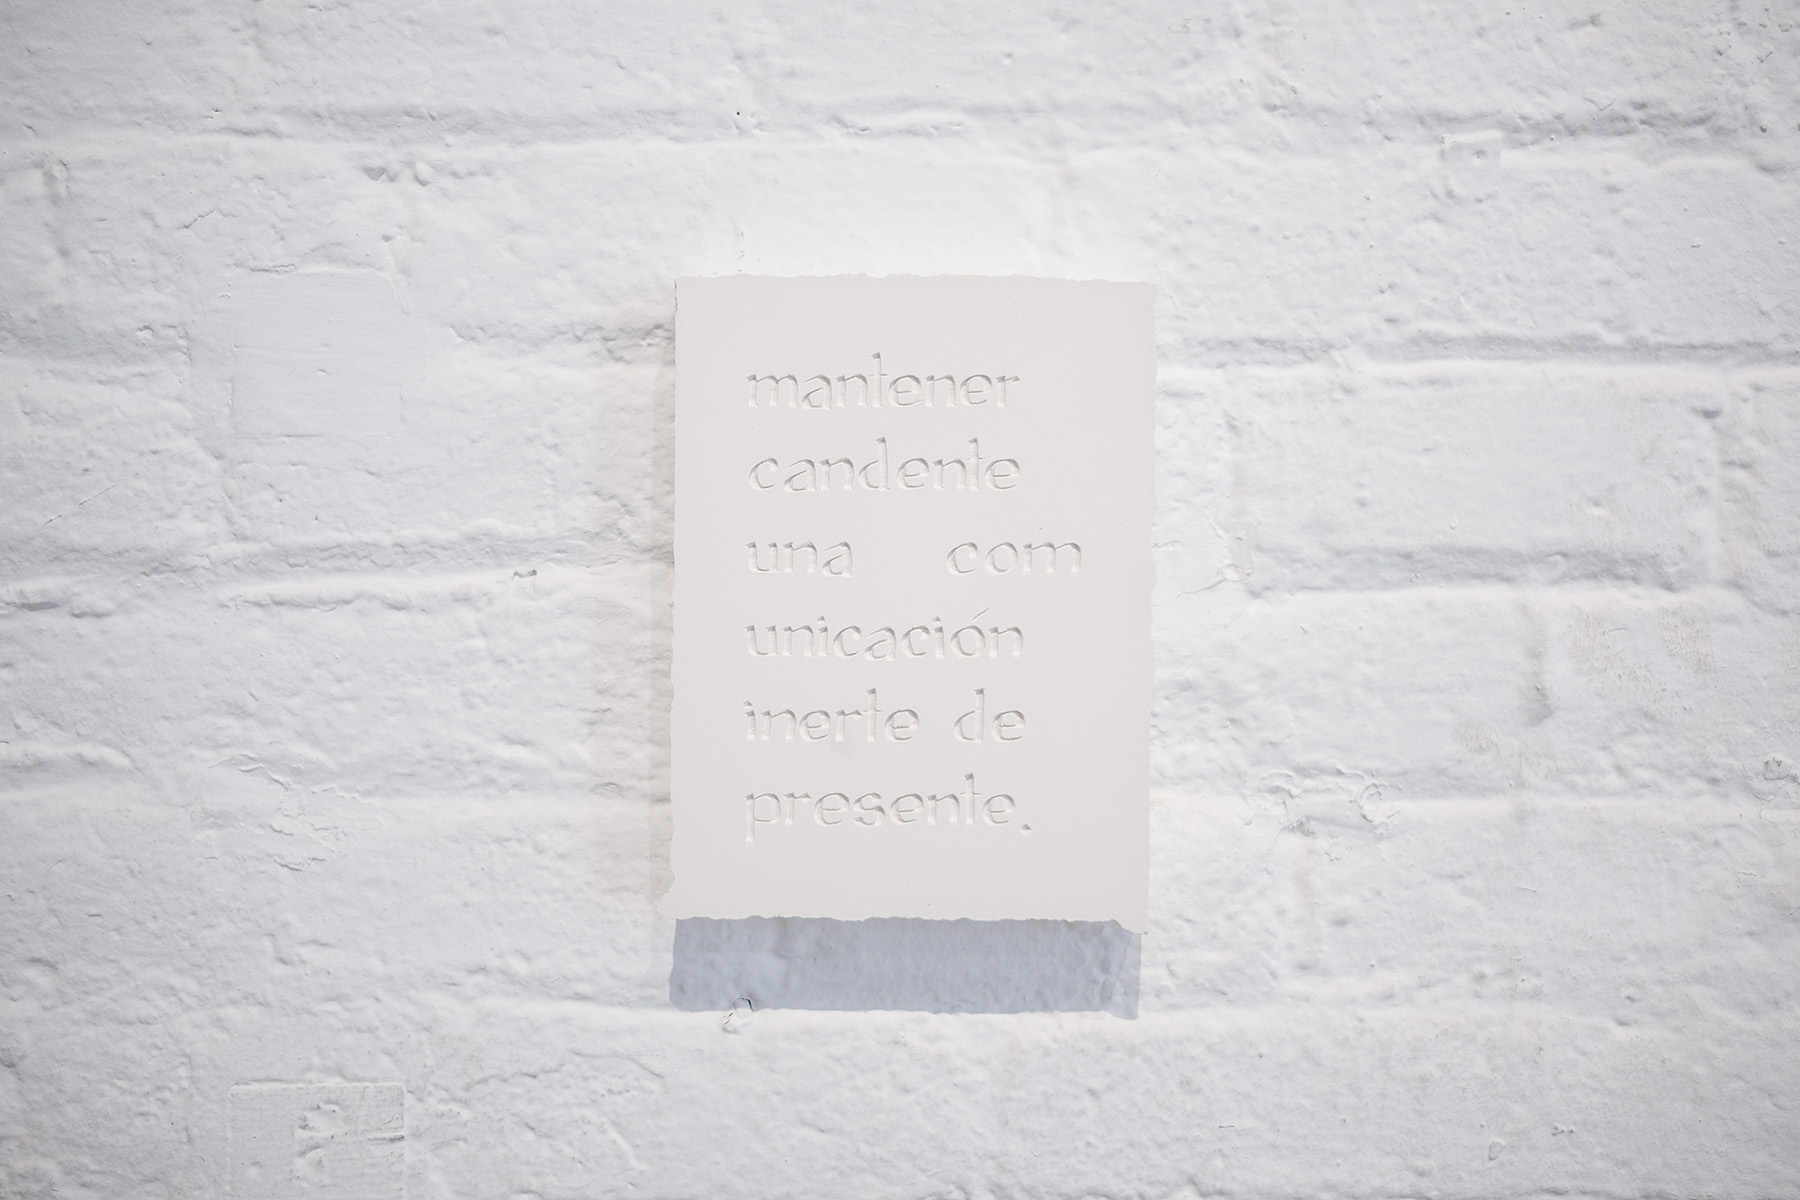 mantener
candente
una com
unicación
inerte de
presente.